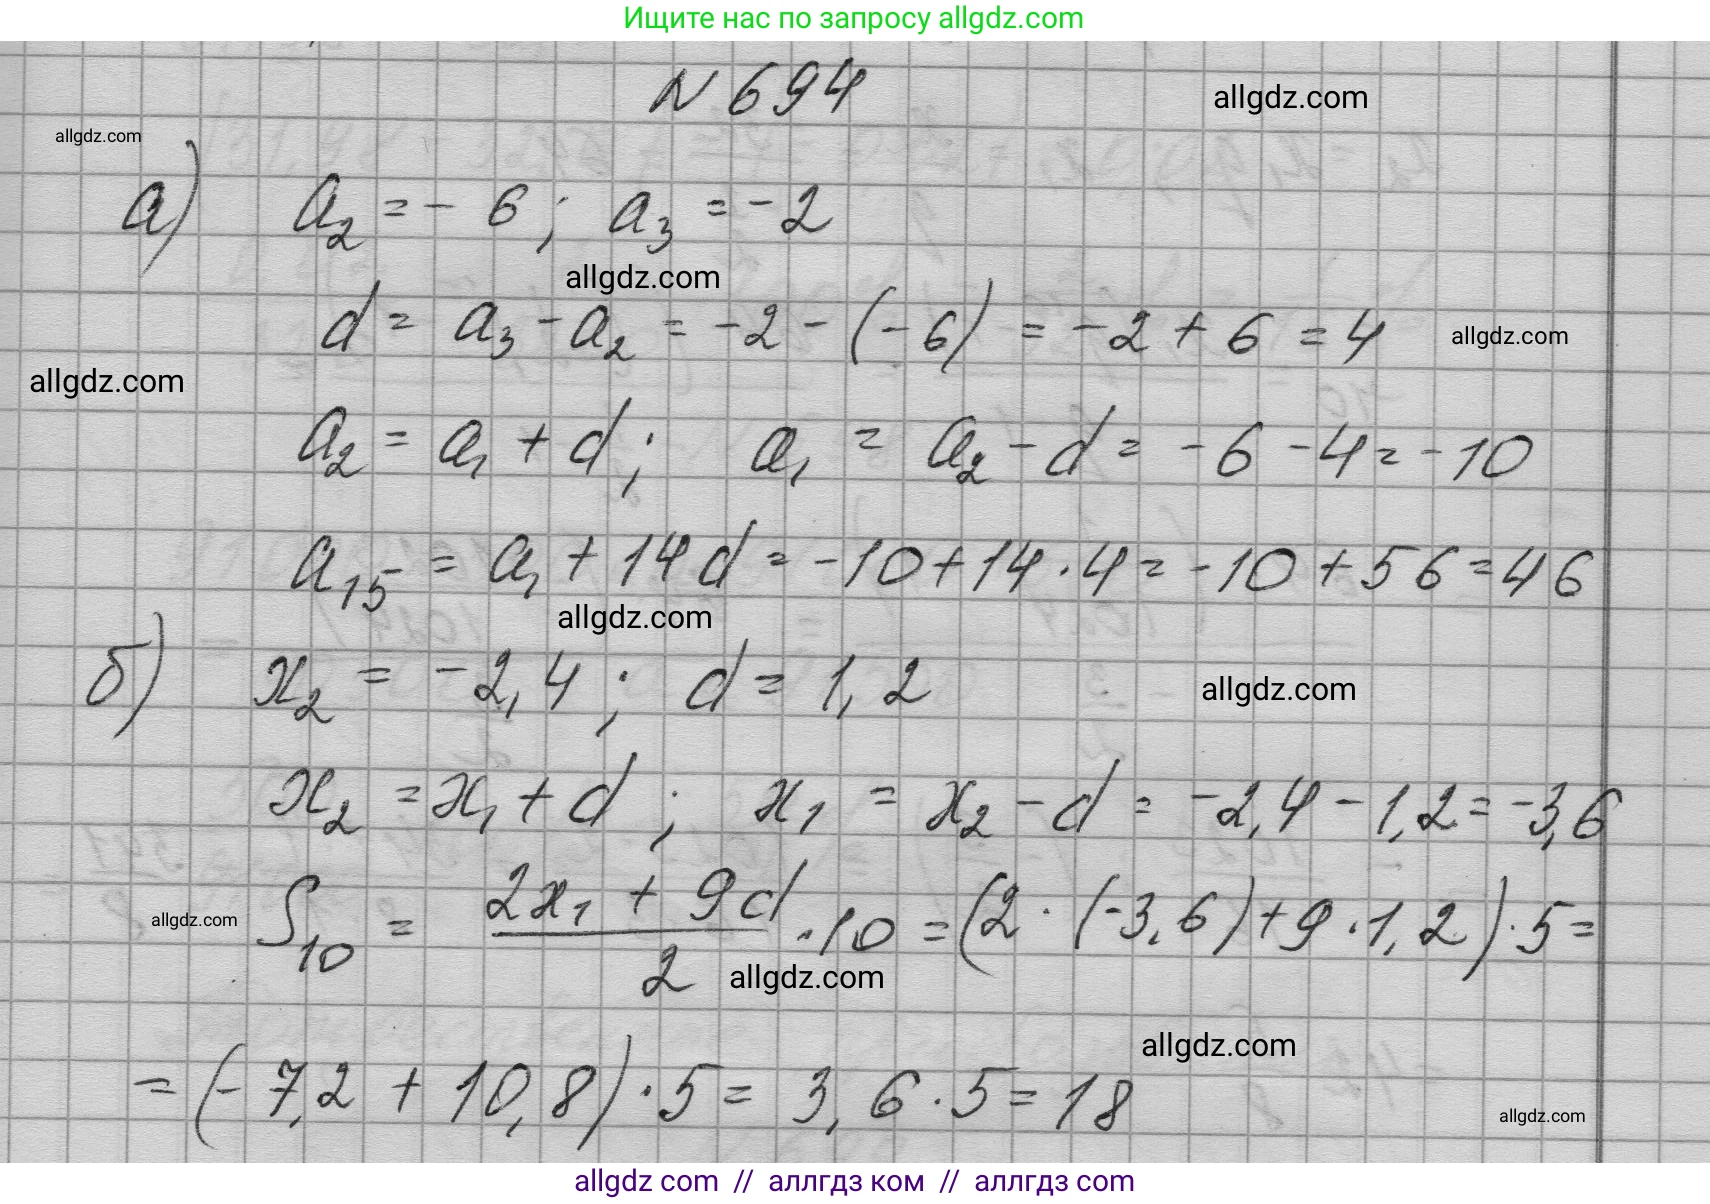 Ищите нас по запросу allgdz.com
N 694
allgdz.com
allgdz.com
а) a₂ = - 6 ; a₃ = -2
allgdz.com
d = a₃ - a₂ = -2 - (-6) = -2 + 6 = 4
allgdz.com
allgdz.com
a₂ = a₁ + d ; a₁ = a₂ - d = -6 - 4 = -10
a₁₅ = a₁ + 14d = -10 + 14 · 4 = -10 + 56 = 46
allgdz.com
б) x₂ = -2,4 ; d = 1,2
allgdz.com
x₂ = x₁ + d ; x₁ = x₂ - d = -2,4 - 1,2 = -3,6
allgdz.com
S₁₀ = (2x₁ + 9d)/2 · 10 = (2 · (-3,6) + 9 · 1,2) · 5 =
allgdz.com
allgdz.com
= (-7,2 + 10,8) · 5 = 3,6 · 5 = 18
allgdz.com
allgdz com // аллгдз ком // аллгдз com